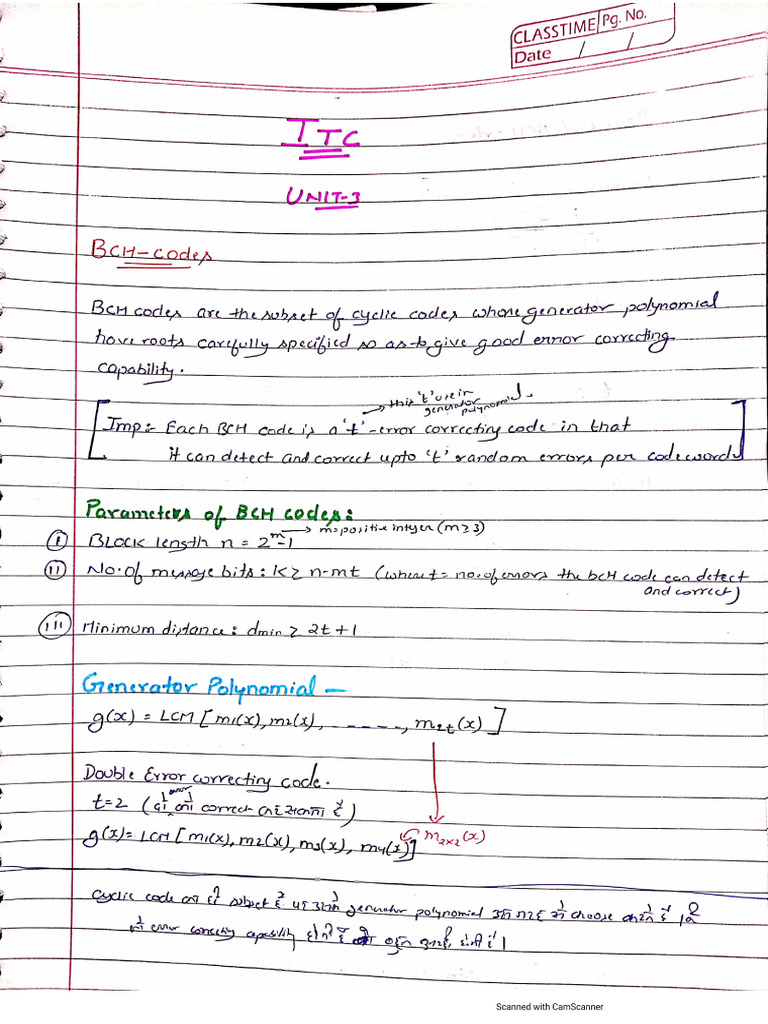 CLASSTIME Pg. No.
Date / /
ITC
UNIT-3
BCH-codes
BCH codes are the subset of cyclic codes whose generator polynomial
have roots carefully specified so as to give good error correcting
capability.
→ this 't' use in generator polynomial.
[Imp:- Each BCH code is a 't'-error correcting code in that
it can detect and correct upto 't' random errors per codeword]
Parameters of BCH codes:
→ m = positive integer (m ≥ 3)
(i) Block length n = 2^m-1
(ii) No. of message bits: k ≥ n-mt (where t = no. of errors the bcH code can detect
and correct)
(iii) Minimum distance: dmin ≥ 2t+1
Generator Polynomial —
g(x) = LCM [m1(x), m2(x), - - - - - -, m2t(x)]
Double Error correcting code.
error
t=2 (दो को correct कर सकता है)
g(x) = LCM [m1(x), m2(x), m3(x), m4(x)] m2×2(x)
cyclic code का ही subset है generator polynomial choose करते है
error correcting capability होती है
Scanned with CamScanner